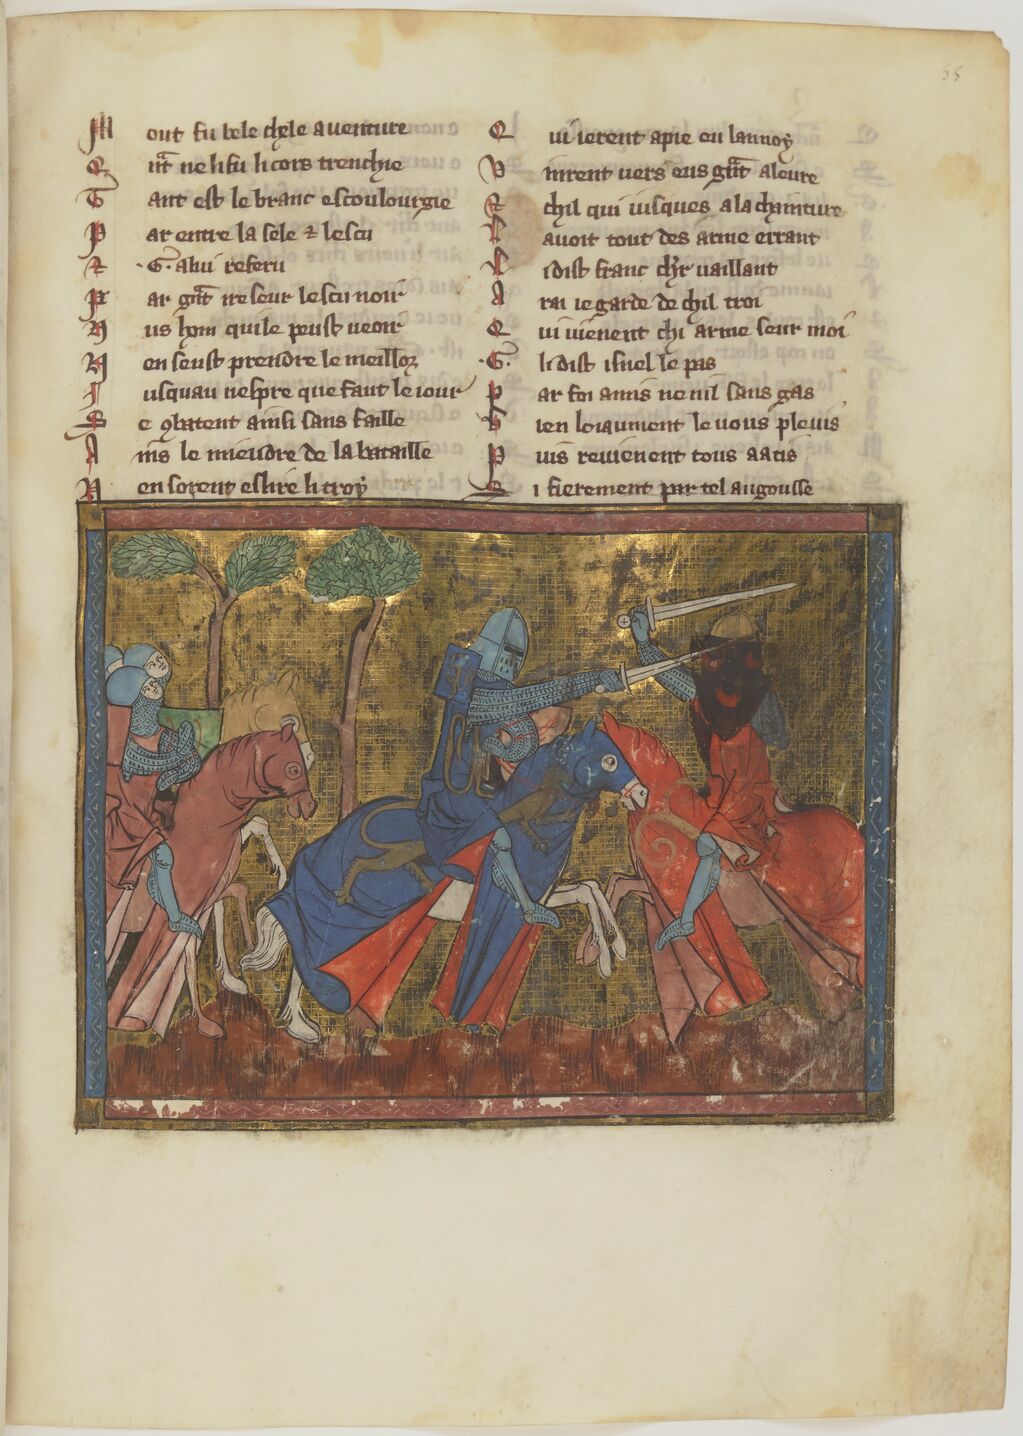 55
M out fu bele chele auenture
Q nt̃ ne li fu li cors trenchie
T ant est le branc escoulourgie
P ar entre la sele ⁊ lescu
R .G. a lui referu
P ar gñt ire seur lescu noir
N us hom qui le peust veoir
N en seust prendre le meillor
I usquau uespre que faut le iour
S e ꝯbatent ainsi sans faille
A ins le mieudre de la bataille
N en sorent eslire li troy
Q ui ierent a pie en lannoy
V inrent uers eus gñt aleure
E t chil qui iusques a la chainture
auoit tout des arme errant
L i dist franc chr̃ uaillant
A rai ie garde de chil troi
Q ui uienent chi arme seur moi
.G. li dist isnel le pas
P ar foi amis nenil sans gas
B ien loiaument le uous pleuis
P uis reuienent tous aatis
S i fierement par tel angousse